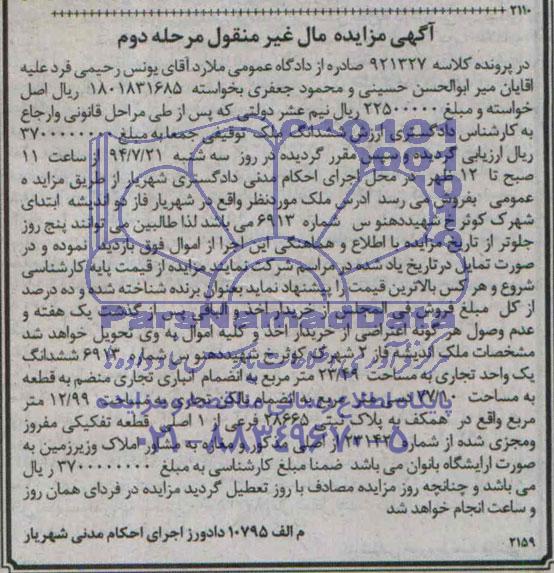 ۲۱۱۰
آگهی مزایده مال غیر منقول مرحله دوم
در پرونده کلاسه ۹۲۱۳۲۷ صادره از دادگاه عمومی ملارد آقای یونس رحیمی فرد علیه
اقایان میر ابوالحسن حسینی و محمود جعفری بخواسته ۱۸۰۱۸۳۱۶۸۵ ریال اصل
خواسته و مبلغ ۲۲۵۰۰۰۰۰ ریال نیم عشر دولتی که پس از طی مراحل قانونی وارجاع
به کارشناس دادگستری ارزش ششدانگ ملک توقیفی جمعا به مبلغ ۳۷۰۰۰۰۰۰۰۰
ریال ارزیابی گردیده و سپس مقرر گردیده در روز سه شنبه ۹۴/۷/۲۱ از ساعت ۱۱
صبح تا ۱۲ ظهر در محل اجرای احکام مدنی دادگستری شهریار از طریق مزایده
عمومی بفروش می رسد ادرس ملک موردنظر واقع در شهریار فاز دو اندیشه ابتدای
شهرک کوثر خ شهیددهنو س شماره ۶۹۱۳ می باشد لذا طالبین می توانند پنج روز
جلوتر از تاریخ مزایده با اطلاع و هماهنگی این اجرا از اموال فوق بازدید نموده و در
صورت تمایل در تاریخ یاد شده در مراسم شرکت نمایند مزایده از قیمت پایه کارشناسی
شروع و هر کس بالاترین قیمت را پیشنهاد نماید بعنوان برنده شناخته شده و ده درصد
از کل مبلغ فروش فی المجلس از خریدار اخذ و الباقی پس از گذشت یک هفته و
عدم وصول هر گونه اعتراضی از خریدار اخذ و کلیه اموال به وی تحویل خواهد شد
مشخصات ملک اندیشه فاز ۲ شهرک کوثر خ شهیددهنو س شماره ۶۹۱۳ ششدانگ
یک واحد تجاری به مساحت ۲۳/۴۹ متر مربع به انضمام انباری تجاری منضم به قطعه
به مساحت ۲۷/۱۰ متر مربع به انضمام بالکن تجاری به مساحت ۱۲/۹۹ متر
مربع واقع در همکف به پلاک ثبتی ۲۸۶۶۵ فرعی از ۱ اصلی قطعه تفکیکی مفروز
ومجزی شده از شماره ۲۳۱۴۲ فرعی مذکور
املاک وزیرزمین به
صورت ارایشگاه بانوان می باشد ضمنا مبلغ کارشناسی به مبلغ ۳۷۰۰۰۰۰۰۰۰ ریال
می باشد و چنانچه روز مزایده مصادف با روز تعطیل گردید مزایده در فردای همان روز
و ساعت انجام خواهد شد
م الف ۱۰۷۹۵ دادورز اجرای احکام مدنی شهریار
۲۱۵۹
ParsNamadData
پایگاه اطلاع رسانی مناقصه و مزایده
۰۲۱-۸۸۳۴۹۶۷۰-۵